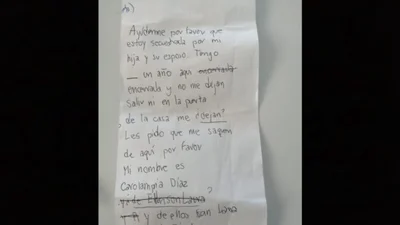 Ayúdenme por favor que
estoy secuestrada por mi
hija y su esposo. Tengo
un año aquí
encerrada y no me dejan
salir ni en la puerta
de la casa me dejan?
Les pido que me saquen
de aquí por favor
Mi nombre es
Díaz
y de ellos